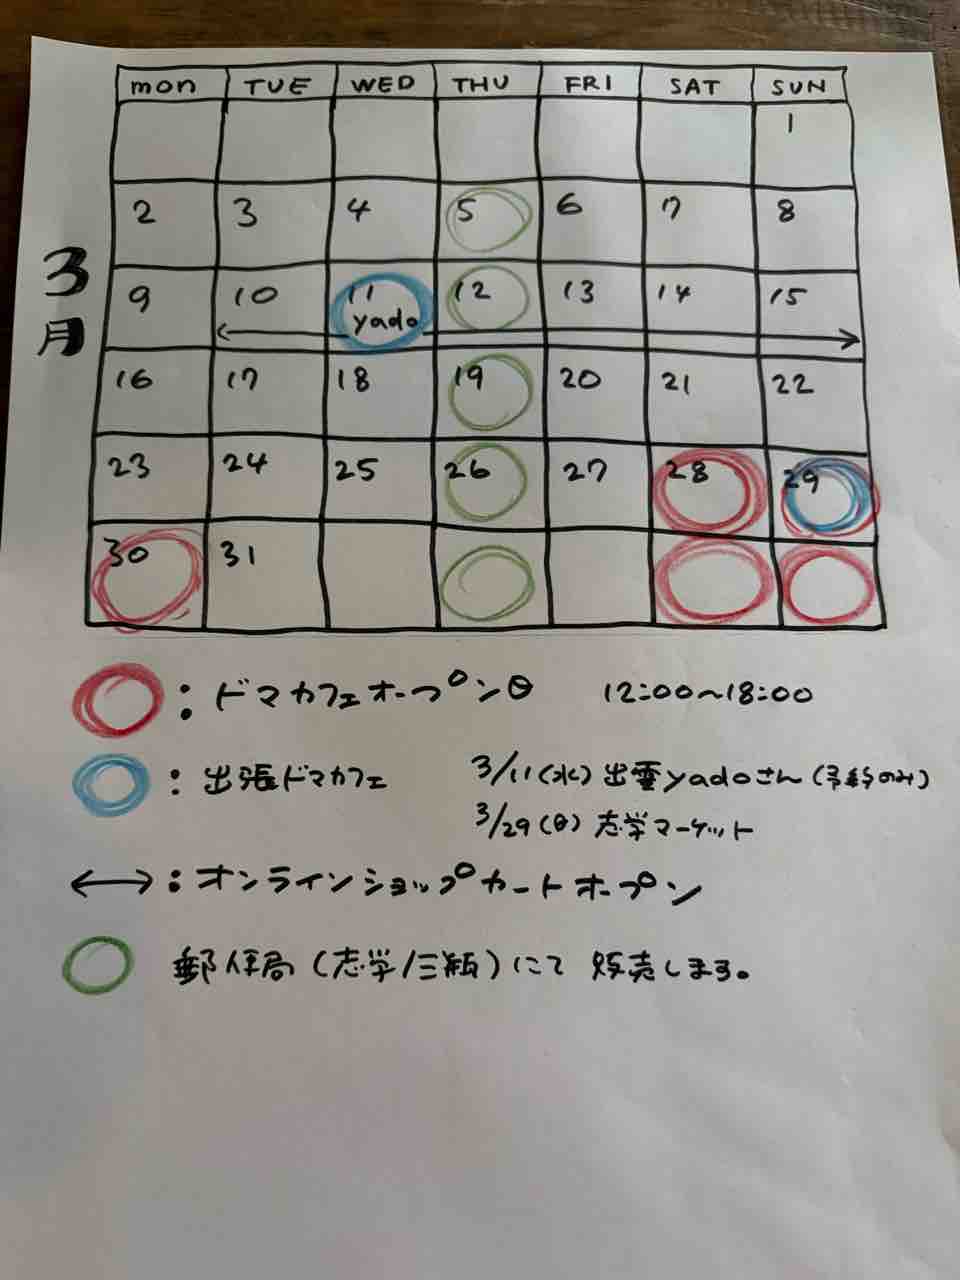 MON TUE WED THU FRI SAT SUN
1
2 3 4 5 6 7 8
3月
9 10 11 12 13 14 15
yado
16 17 18 19 20 21 22
23 24 25 26 27 28 29
30 31
：ドマカフェオープン日 12:00〜18:00
：出張ドマカフェ 3/11(水)出雲yadoさん(予約のみ)
3/29(日)志学マーケット
：オンラインショップカートオープン
郵便局(志学/三瓶)にて 販売します。